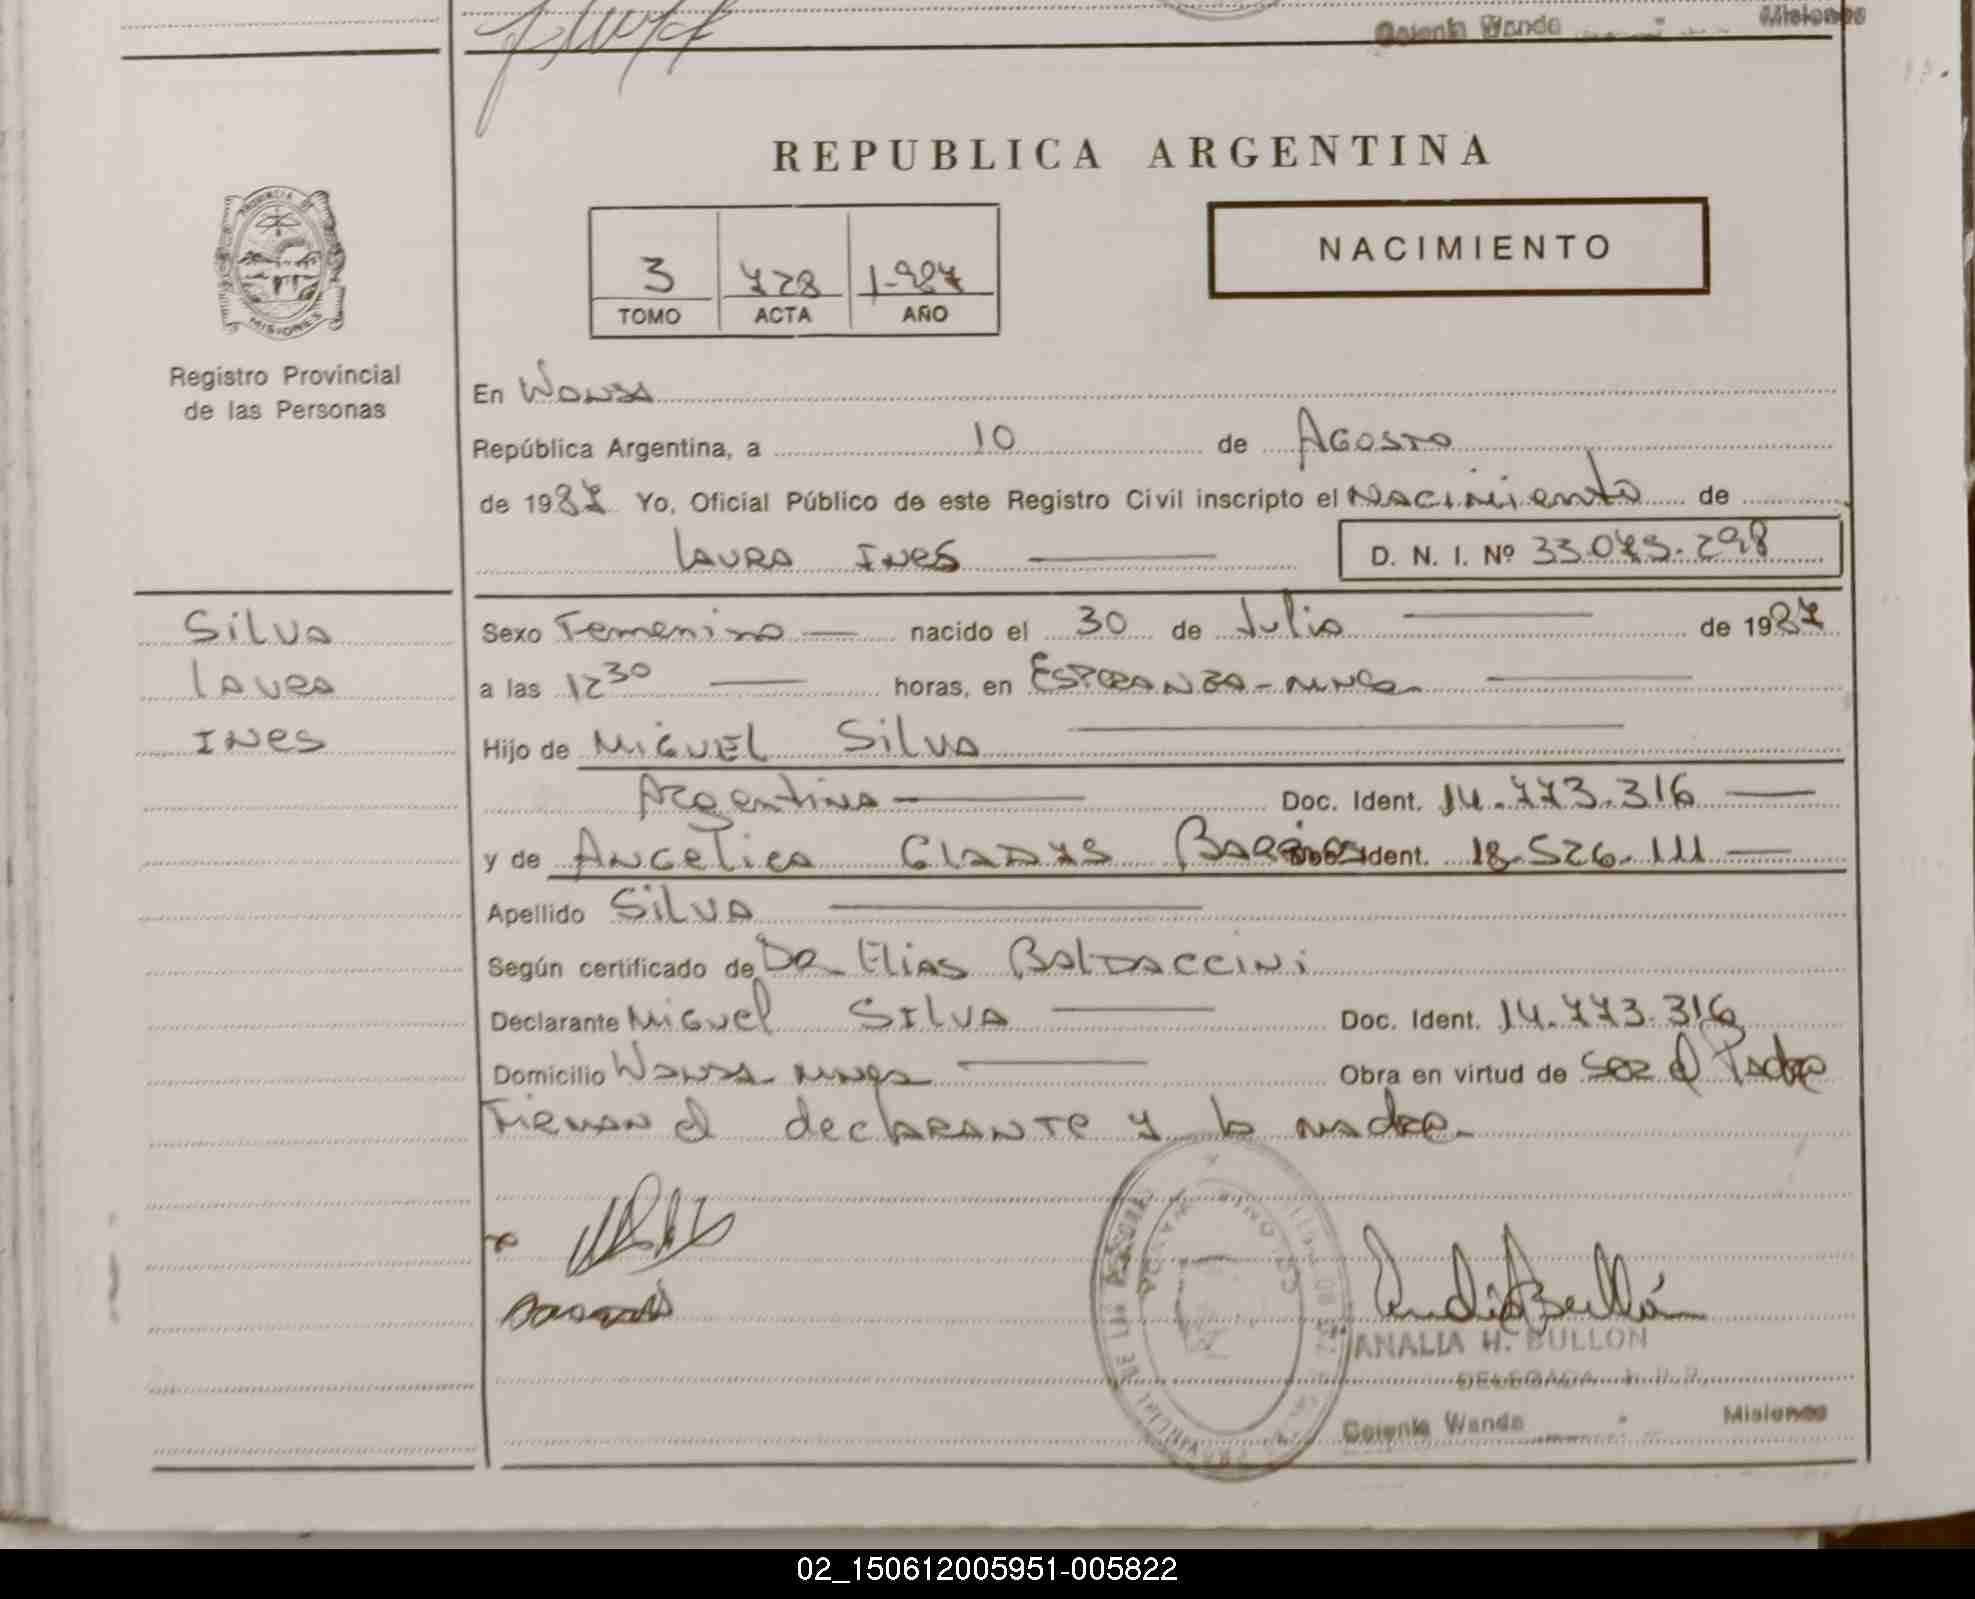 Colonia Wanda Misiones
REPUBLICA ARGENTINA
NACIMIENTO
3 728 1-987
TOMO ACTA AÑO
PROVINCIA DE
MISIONES
Registro Provincial
de las Personas
En Wanda
República Argentina, a 10 de Agosto
de 1987 Yo, Oficial Público de este Registro Civil inscripto el Nacimiento de
Laura Ines D. N. I. Nº 33.073.298
Silva
Laura
Ines
Sexo Femenino nacido el 30 de Julio de 1987
a las 12 30 horas, en Esperanza - Mnes.
Hijo de Miguel Silva
Argentino Doc. Ident. 14.773.316
y de Angelica Gladys Barrios Doc. Ident. 18.526.111
Apellido Silva
Según certificado de Dr. Elias Baldaccini
Declarante Miguel Silva Doc. Ident. 14.773.316
Domicilio Wanda - Mnes Obra en virtud de ser el Padre
Firman el declarante y la madre.
ANALIA H. BULLON
DELEGADA
Colonia Wanda Misiones
02_150612005951-005822